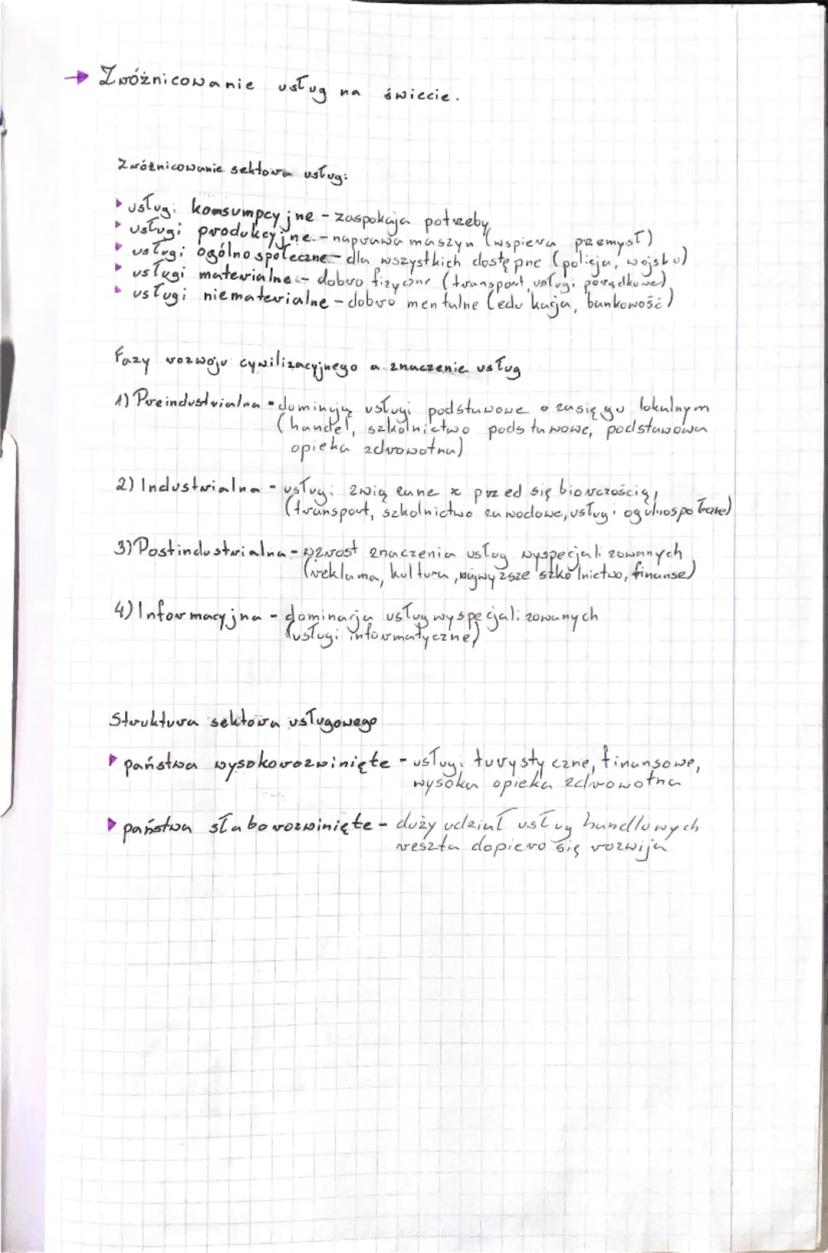 → Zróżnicowanie usług na świecie.
Zróżnicowanie sektora usług:
usługi konsumpcyjne - zaspokaja potrzeby
usługi produkcyjne - naprawa maszyn (wspiera przemysł)
usługi ogólnospołeczne - dla wszystkich dostępne (policja, wojsko)
usługi materialne - dobro fizyczne (transport, usługi porządkowe)
usługi niematerialne - dobro mentalne (edukacja, bankowość)
Fazy rozwoju cywilizacyjnego a znaczenie usług
1) Preindustrialna - dominują usługi podstawowe o zasięgu lokalnym
(handel, szkolnictwo podstawowe, podstawowa
opieka zdrowotna)
2) Industrialna - usługi związane z przedsiębiorczością,
(transport, szkolnictwo zawodowe, usługi ogólnospołeczne)
3) Postindustrialna - wzrost znaczenia usług wyspecjalizowanych
(reklama, kultura, wyższe szkolnictwo, finanse)
4) Informacyjna - dominacja usług wyspecjalizowanych
(usługi informatyczne)
Struktura sektora usługowego
państwa wysokorozwinięte - usługi turystyczne, finansowe,
wysoka opieka zdrowotna
państwa słaborozwinięte - duży udział usług handlowych
reszta dopiero się rozwija